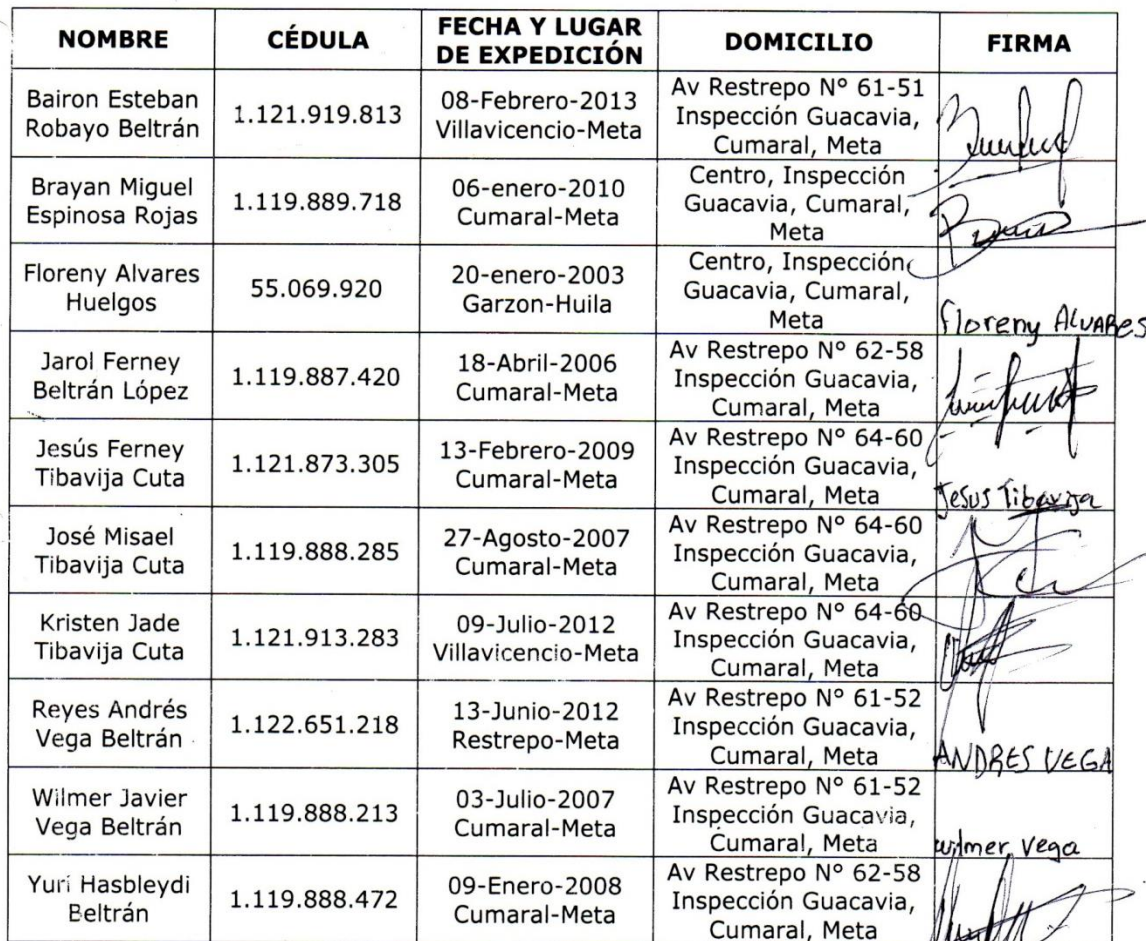 NOMBRE
CÉDULA
FECHA Y LUGAR
DE EXPEDICIÓN
DOMICILIO
FIRMA
Bairon Esteban
Robayo Beltrán
1.121.919.813
08-Febrero-2013
Villavicencio-Meta
Av Restrepo Nº 61-51
Inspección Guacavia,
Cumaral, Meta
Brayan Miguel
Espinosa Rojas
1.119.889.718
06-enero-2010
Cumaral-Meta
Centro, Inspección
Guacavia, Cumaral,
Meta
Floreny Alvares
Huelgos
55.069.920
20-enero-2003
Garzon-Huila
Centro, Inspección
Guacavia, Cumaral,
Meta
floreny ALVARES
Jarol Ferney
Beltrán López
1.119.887.420
18-Abril-2006
Cumaral-Meta
Av Restrepo Nº 62-58
Inspección Guacavia,
Cumaral, Meta
Jesús Ferney
Tibavija Cuta
1.121.873.305
13-Febrero-2009
Cumaral-Meta
Av Restrepo Nº 64-60
Inspección Guacavia,
Cumaral, Meta
Jesus Tibavija
José Misael
Tibavija Cuta
1.119.888.285
27-Agosto-2007
Cumaral-Meta
Av Restrepo Nº 64-60
Inspección Guacavia,
Cumaral, Meta
Kristen Jade
Tibavija Cuta
1.121.913.283
09-Julio-2012
Villavicencio-Meta
Av Restrepo Nº 64-60
Inspección Guacavia,
Cumaral, Meta
Reyes Andrés
Vega Beltrán
1.122.651.218
13-Junio-2012
Restrepo-Meta
Av Restrepo Nº 61-52
Inspección Guacavia,
Cumaral, Meta
ANDRES VEGA
Wilmer Javier
Vega Beltrán
1.119.888.213
03-Julio-2007
Cumaral-Meta
Av Restrepo Nº 61-52
Inspección Guacavia,
Cumaral, Meta
wilmer Vega
Yuri Hasbleydi
Beltrán
1.119.888.472
09-Enero-2008
Cumaral-Meta
Av Restrepo Nº 62-58
Inspección Guacavia,
Cumaral, Meta